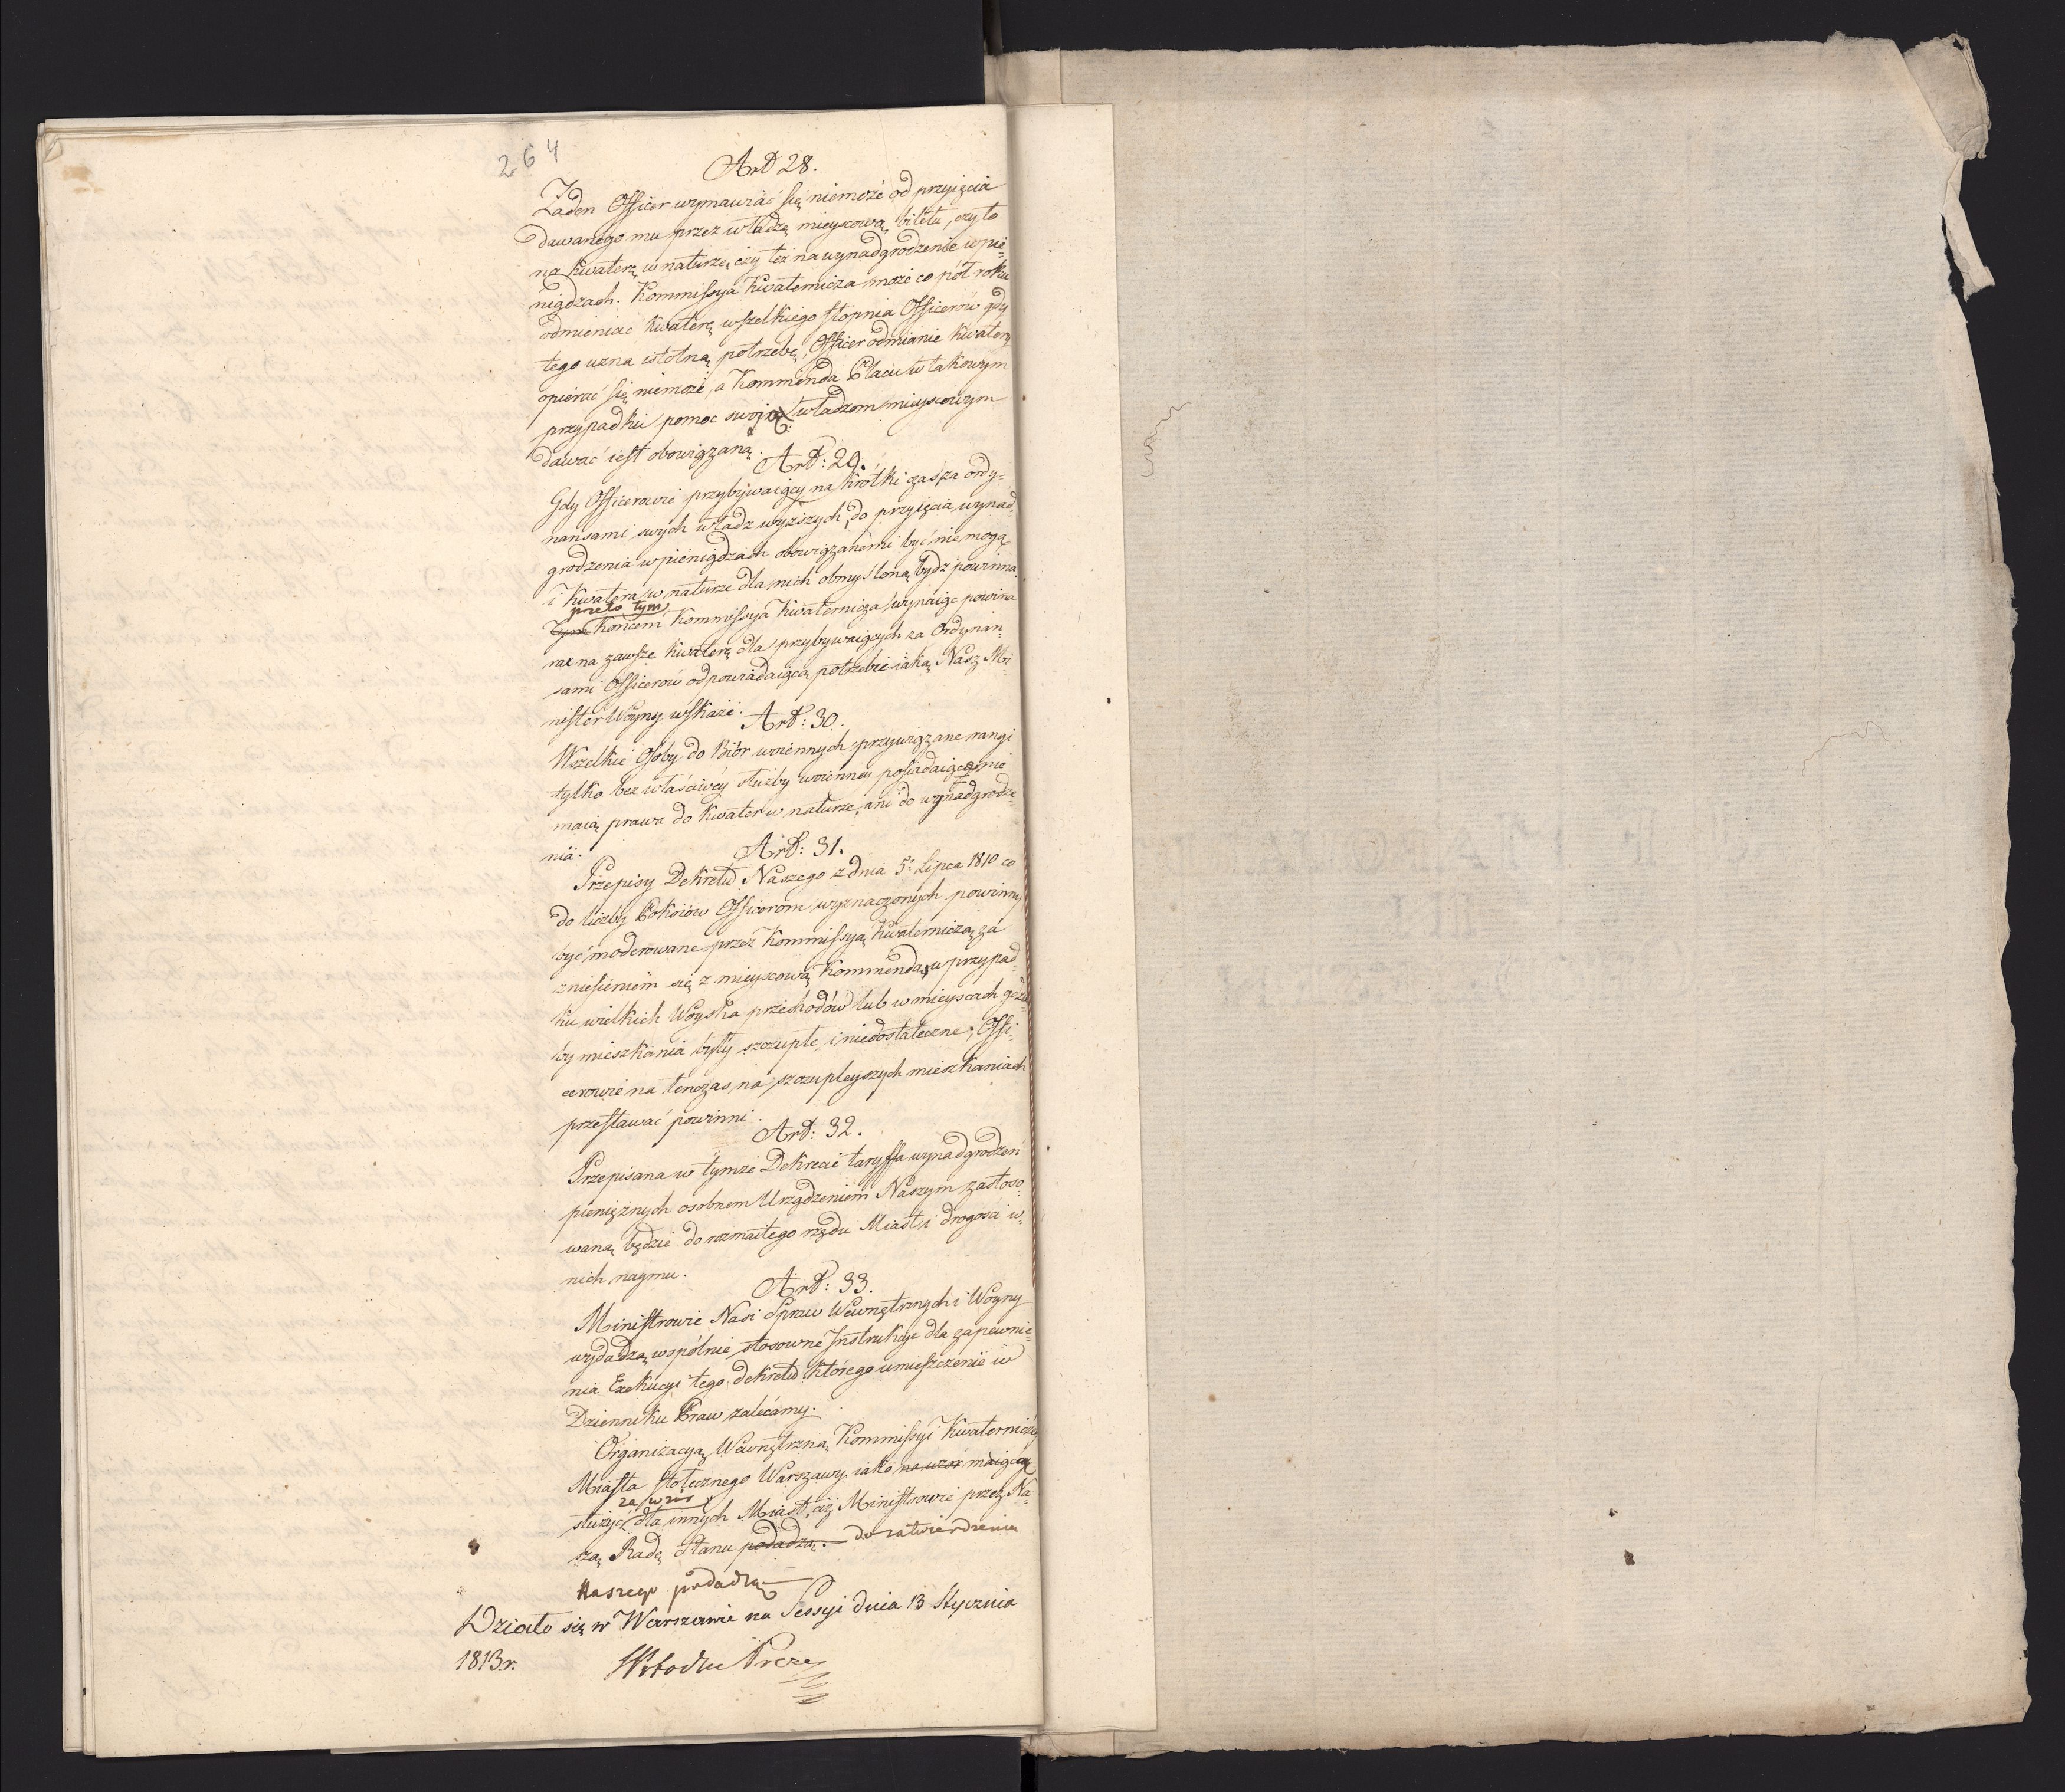 264
Art 28.
Żaden Officer wymawiać się niemoże od przyięcia
dawanego mu przez władzę mieyscową biletu, czy to
na kwaterę w naturze, czy też na wynadgrodzenie w pie-
niądzach. Kommissya Kwaternicza może co pół roku
odmieniac kwaterę wszelkiego stopnia Officerów gdy
tego uzna istotną potrzebę, Officer odmianie kwatery
opierać się niemoże, a Kommenda Placu w takowym
przypadku pomoc swoją władzom mieyscowym
dawać iest obowiązaną.
Art: 29.
Gdy Officerowie przybywaiący na krótki czas za ordy-
nansami swych władz wyższych, do przyięcia wynad-
grodzenia w pieniądzach obowiązanemi być nie mogą
i kwatera w naturze dla nich obmyśloną bydź powinna,
przeto tym
tym końcem Kommissya Kwaternicza wynaiąc powina
raz na zawsze kwaterę dla przybywaiących za Ordynan-
sami Officerow odpowiadaiącą potrzebie iaką Nasz Mi-
nister Woyny wskaże.
Art: 30.
Wszelkie Osoby do Biór woiennych przywiązane rangi
tylko bez właściwey służby woienney posiadaiące, nie
maią prawa do kwater w naturze, ani do wynadgrodze-
nia.
Art: 31.
Przepisy Dekretu Naszego z dnia 5º Lipca 1810 co
do liczby Pokoiów Officerom wyznaczonych powinny
być moderowane przez Kommissyą Kwaterniczą za
zniesieniem się z mieyscową Kommendą, w przypad-
ku wielkich Woyska przechodów lub w mieyscach gdzie
by mieszkania były szczupłe i niedostateczne, Offi-
cerowie na tenczas na szczupleyszych mieszkaniach
przestawać powinni.
Art: 32.
Przepisana w tymże Dekrecie taryffa wynadgrodzeń
pieniężnych osobnem Urządzeniem Naszym zastoso-
waną będzie do rozmaitego rzędu Miast i drogości w
nich naymu.
Art: 33.
Ministrowie Nasi Spraw Wewnętrznych i Woyny
wydadzą wspólnie stosowne Instrukcye dla zapewnie-
nia Exekucyi tego dekretu którego umieszczenie w
Dzienniku Praw zalécamy.
Organizacyą Wewnętrzną Kommissyi Kwaterniczéy
Miasta stołecznego Warszawy iako na wzór maiącą
za wzór
służyć dla innych Miast, ciż Ministrowie przez Na-
szą Radę Stanu podadzą. do zatwierdzenia
Naszego podadzą
Działo się w Warszawie na Sessyi dnia 13 Stycznia
1813 r.